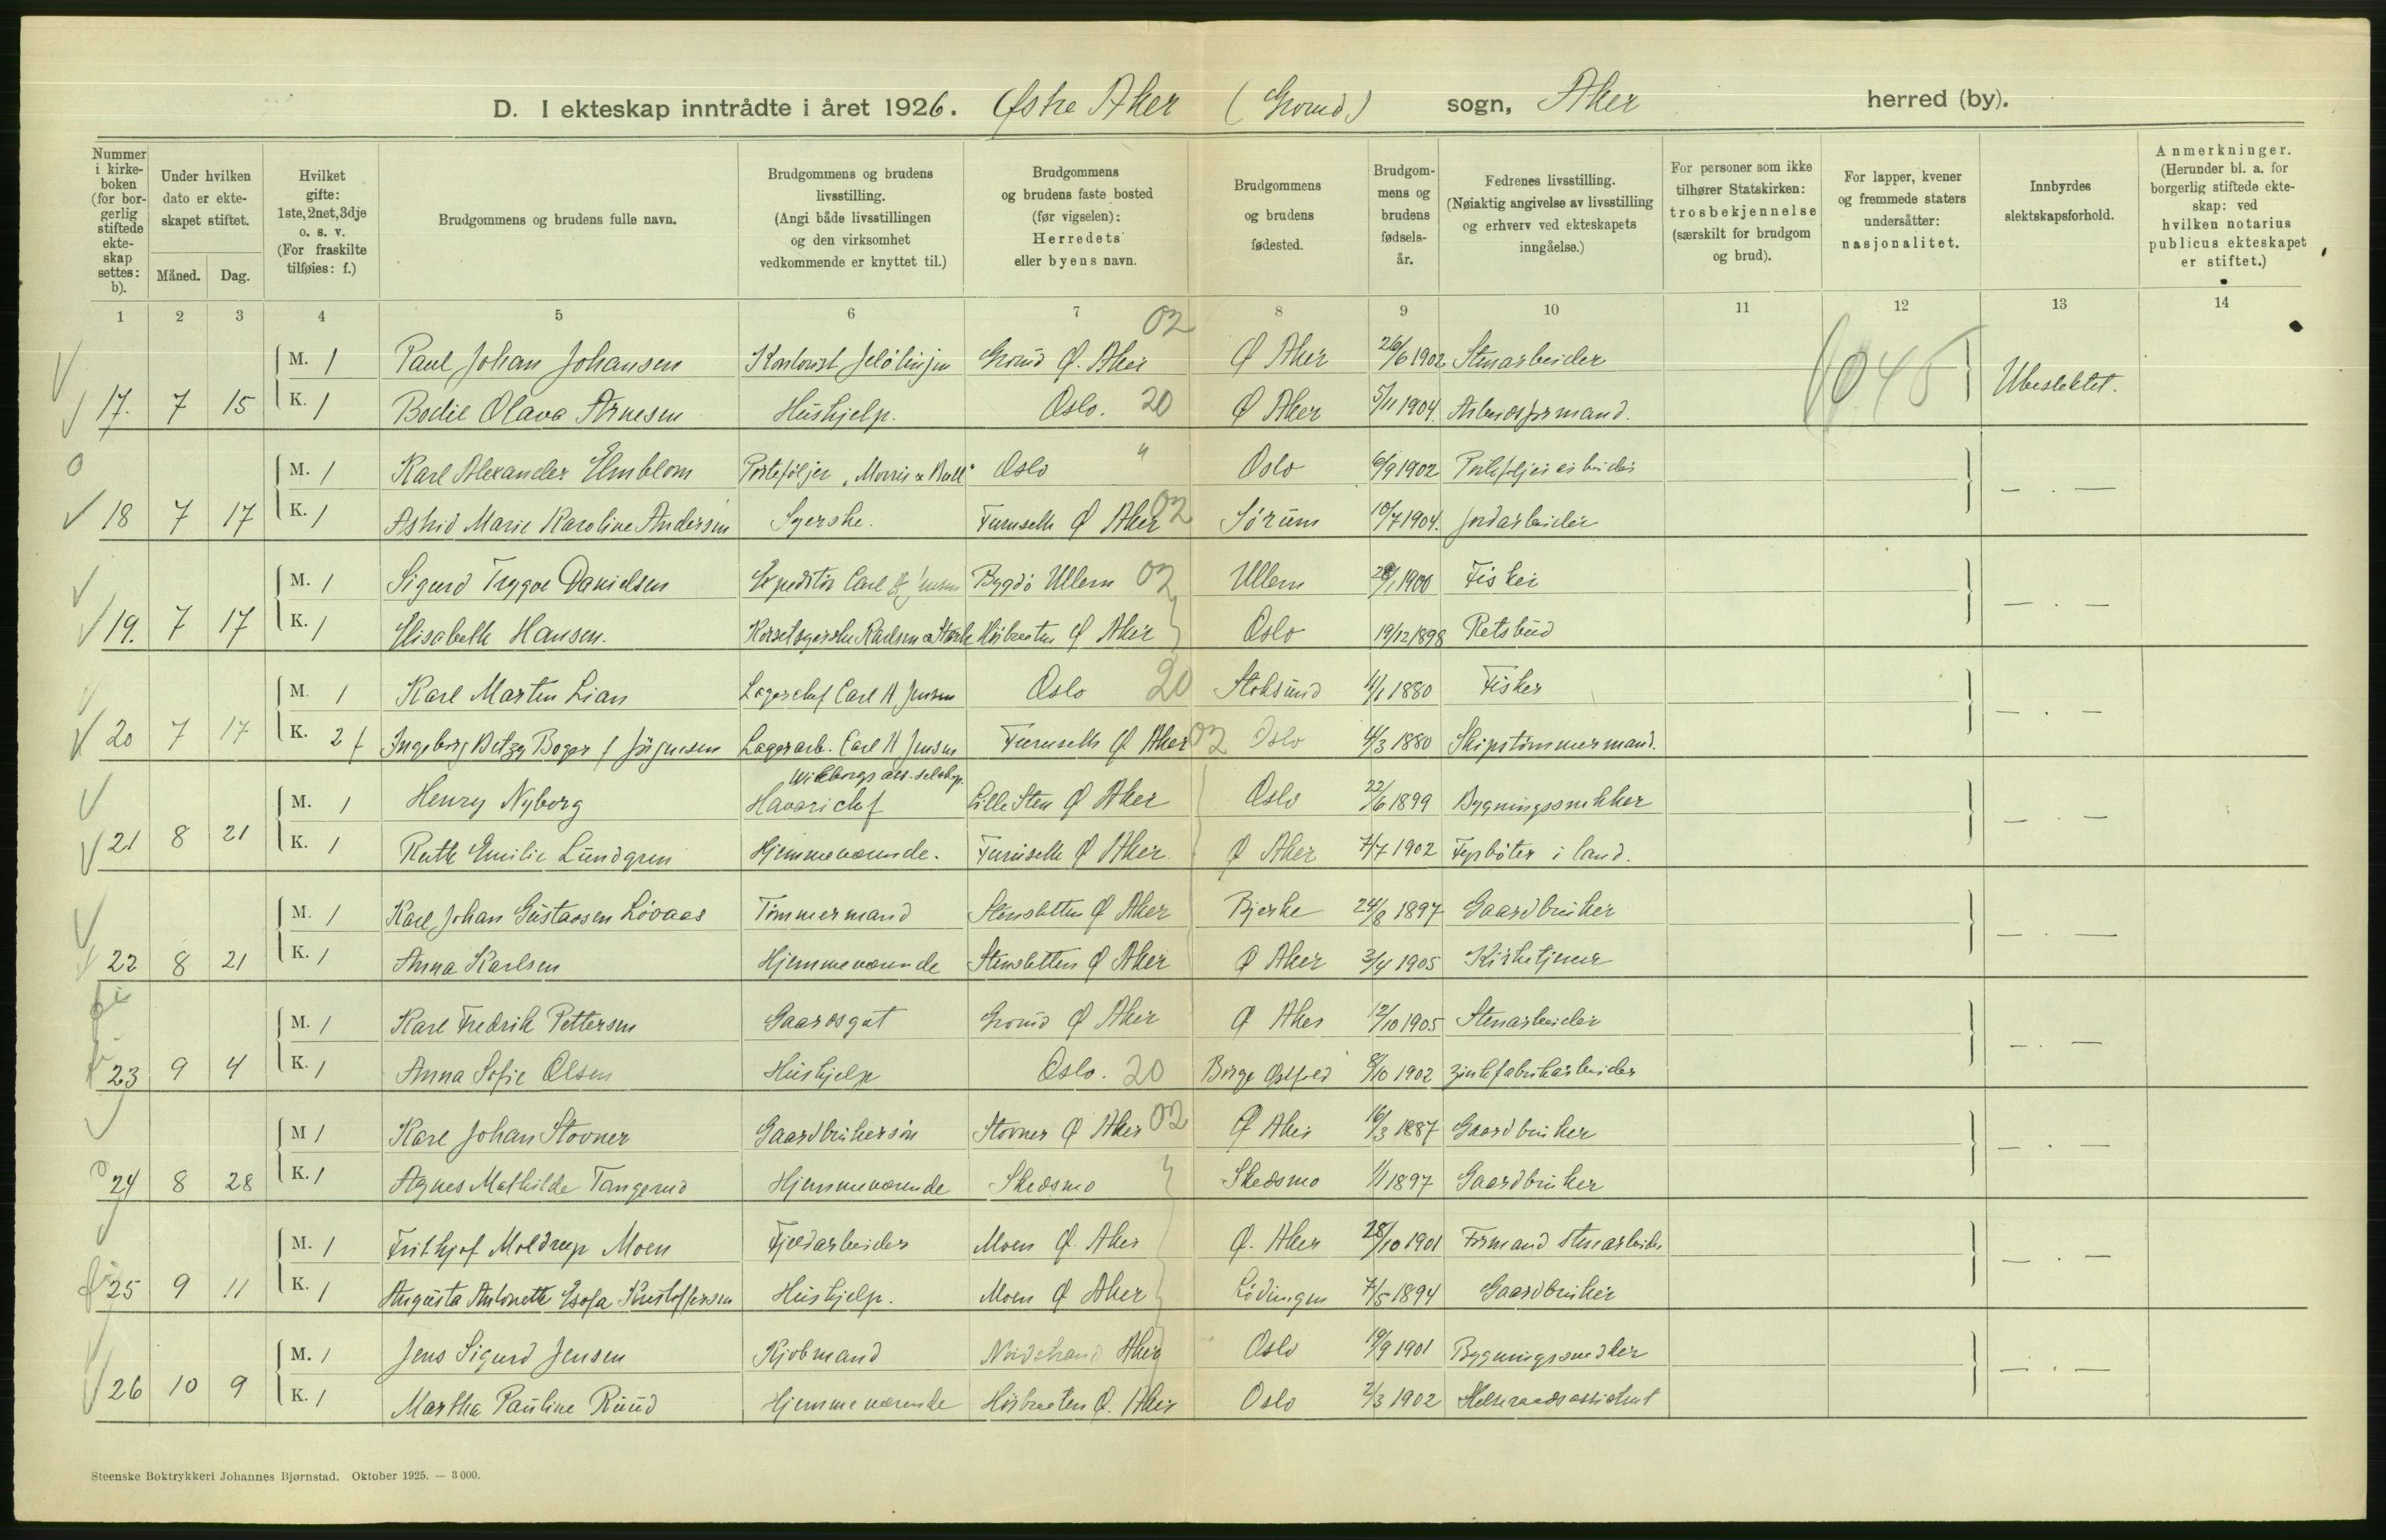 D. I ekteskap inntrådte i året 1926. Østre Aker (Grorud) sogn, Aker herred (by).
Nummer i kirkeboken (for borgerlig stiftede ekteskap settes: b).
Under hvilken dato er ekteskapet stiftet.
Måned. Dag.
Hvilket gifte: 1ste, 2net, 3dje o. s. v. (For fraskilte tilføies: f.)
Brudgommens og brudens fulle navn.
Brudgommens og brudens livsstilling. (Angi både livsstillingen og den virksomhet vedkommende er knyttet til.)
Brudgommens og brudens faste bosted (før vigselen): Herredets eller byens navn.
Brudgommens og brudens fødested.
Brudgommens og brudens fødselsår.
Fedrenes livsstilling. (Nøiaktig angivelse av livsstilling og erhverv ved ekteskapets inngåelse.)
For personer som ikke tilhører Statskirken: trosbekjennelse (særskilt for brudgom og brud).
For lapper, kvener og fremmede staters undersåtter: nasjonalitet.
Innbyrdes slektskapsforhold.
Anmerkninger. (Herunder bl. a. for borgerlig stiftede ekteskap: ved hvilken notarius publicus ekteskapet er stiftet.)
1 2 3 4 5 6 7 8 9 10 11 12 13 14
02
M. 1 Paul Johan Johansen Kontorist Grorud Ø. Aker Ø Aker 26/6 1902 Stenarbeider
17. 7 15 K. 1 Bodil Olava Arnesen Hushjelp. Oslo. 20 Ø Aker 5/11 1904. Arbeidsformand. 045 Ubeslektet.
M. 1 Karl Alexander Elmblom Porteføljer "Morris & Bull" Oslo " Oslo 6/9 1902 Porteføljearbeider
18 7 17 K. 1 Astrid Marie Karoline Andersen Syerske. Furuseth Ø Aker 02 Sørum 10/7 1904. Jordarbeider — . —
M. 1 Sigurd Trygve Danielsen Expeditør Carl Jensen Bygdø Ullern 02 Ullern 1900 Fisker
19. 7 17 K. 1 Elisabeth Hansen. Korsetsyerske Høibraaten Ø Aker Oslo 19/12 1898 Retsbud — . —
M. 1 Karl Martin Lian Lagerchef Carl A Jensen Oslo 20 Stoksund 11/1 1880 Fisker
20 7 17 K. 2 f Ingeborg Betzy Boger f Jørgensen Lagerarb. Carl A Jensen Furuseth Ø Aker 02 Oslo 4/3 1880 Skipstømmermand. — . —
M. 1 Henry Nyborg Havarichef Lille Sten Ø Aker Oslo 22/6 1899 Bygningssnekker
21 8 21 K. 1 Ruth Emilie Lundgren Hjemmeværende. Furuseth Ø Aker. Ø Aker 7/7 1902 Fyrbøter i land. — . —
M. 1 Karl Johan Gustavsen Løvaas Tømmermand Stensletten Ø Aker Bjerke 24/8 1897 Gaardbruker
22 8 21 K. 1 Anna Karlsen Hjemmeværende Stensletten Ø Aker Ø Aker 3/4 1905 Kirketjener — . —
M. 1 Karl Fredrik Pettersen Gaardsgut Grorud Ø Aker Ø Aker 12/10 1905 Stenarbeider
23 9 4 K. 1 Anna Sofie Olsen Hushjelp Oslo. 20 Borge Østfold 8/10 1902 Zinkfabrikarbeider — . —
M 1 Karl Johan Stovner Gaardbrukersøn Stovner Ø Aker 02 Ø Aker 16/3 1887 Gaardbruker
24 8 28 K. 1 Agnes Mathilde Tangerud Hjemmeværende Skedsmo Skedsmo 1/1 1897 Gaardbruker — . —
M. 1 Frithjof Moldrup Moen Fjeldarbeider Moen Ø. Aker Ø. Aker 28/10 1901 Formand Stenarbeider
25 9 11 K. 1 Augusta Antonette Kristoffersen Hushjelp. Moen Ø Aker Lødingen 7/5 1894 Gaardbruker — . —
M. 1 Jens Sigurd Jensen Kjøbmand Nordstrand Aker Oslo 19/9 1901 Bygningssnedker
26 10 9 K. 1 Martha Pauline Ruud Hjemmeværende Høibraaten Ø. Aker Oslo 2/3 1902 Helseraadsassistent — . —
Steenske Boktrykkeri Johannes Bjørnstad. Oktober 1925. — 3 000.